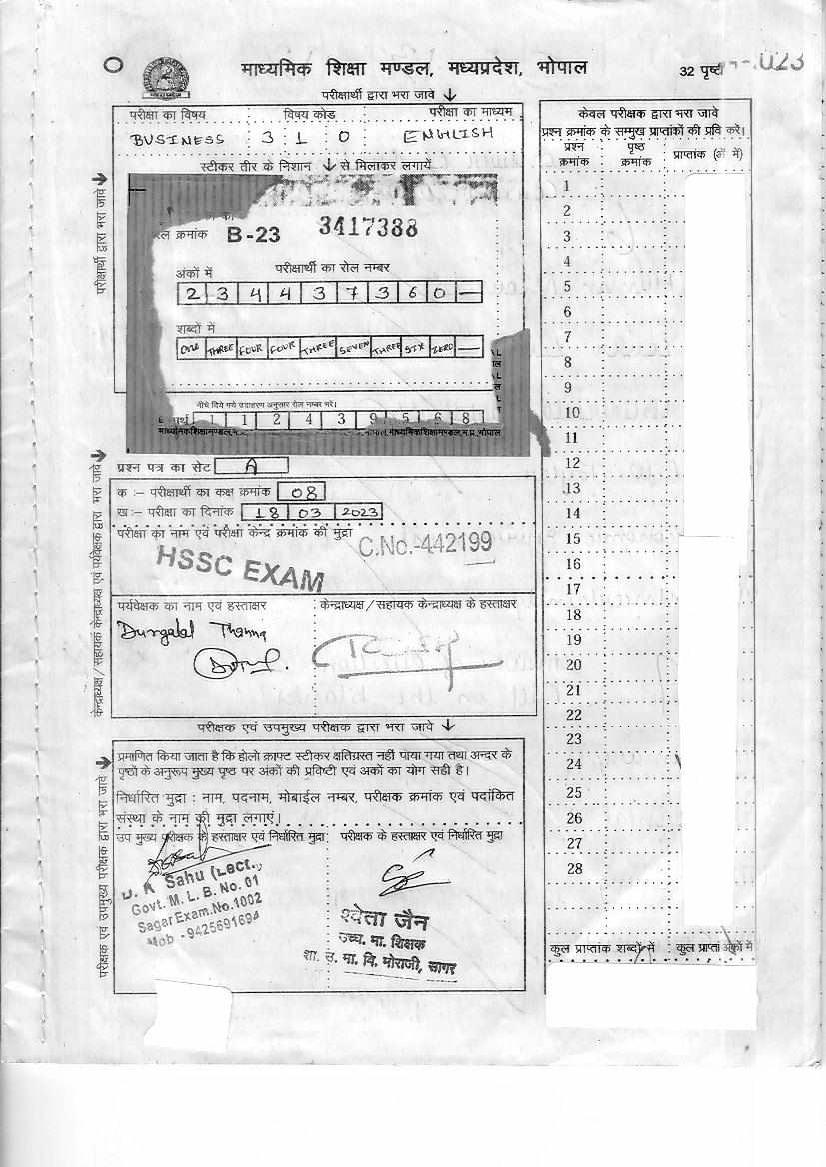 माध्यमिक शिक्षा मण्डल, मध्यप्रदेश, भोपाल
32 पृष्ठ
परीक्षार्थी द्वारा भरा जावे ↓
परीक्षा का विषय विषय कोड परीक्षा का माध्यम
BUSINESS 3 1 0 ENHLISH
स्टीकर तीर के निशान ↓ से मिलाकर लगायें
क्रमांक B-23 3417388
अंकों में परीक्षार्थी का रोल नम्बर
2 3 4 4 3 7 3 6 0 —
शब्दों में
ONE THREE FOUR FOUR THREE SEVEN THREE SIX ZERO —
नीचे दिये गये उदाहरण अनुसार रोल नम्बर भरे।
1 1 2 4 3 9 5 6 8
परीक्षार्थी द्वारा भरा जावे
प्रश्न पत्र का सेट A
क :– परीक्षार्थी का कक्ष क्रमांक 08
ख:– परीक्षा का दिनांक 18 03 2023
परीक्षा का नाम एवं परीक्षा केन्द्र क्रमांक की मुद्रा
C.No.-442199
HSSC EXAM
पर्यवेक्षक का नाम एवं हस्ताक्षर केन्द्राध्यक्ष/सहायक केन्द्राध्यक्ष के हस्ताक्षर
केन्द्राध्यक्ष/सहायक केन्द्राध्यक्ष एवं पर्यवेक्षक द्वारा भरा जावे
परीक्षक एवं उपमुख्य परीक्षक द्वारा भरा जावे ↓
प्रमाणित किया जाता है कि होलो क्राफ्ट स्टीकर क्षतिग्रस्त नहीं पाया गया तथा अन्दर के
पृष्ठों के अनुरूप मुख्य पृष्ठ पर अंकों की प्रविष्टी एवं अकों का योग सही है।
निर्धारित मुद्रा : नाम, पदनाम, मोबाईल नम्बर, परीक्षक क्रमांक एवं पदांकित
संस्था के नाम की मुद्रा लगाएं।
उप मुख्य परीक्षक के हस्ताक्षर एवं निर्धारित मुद्रा: परीक्षक के हस्ताक्षर एवं निर्धारित मुद्रा
Sahu (Lect.,
Govt. M. L. B. No. 01
Sagar Exam.No.1002
Mob -9425691694
श्वेता जैन
उच्च. मा. शिक्षक
शा. उ. मा. वि. मोराजी, सागर
परीक्षक एवं उपमुख्य परीक्षक द्वारा भरा जावे
केवल परीक्षक द्वारा भरा जावे
प्रश्न क्रमांक के सम्मुख प्राप्तांकों की प्रवि करें।
प्रश्न क्रमांक पृष्ठ क्रमांक प्राप्तांक
1
2
3
4
5
6
7
8
9
10
11
12
13
14
15
16
17
18
19
20
21
22
23
24
25
26
27
28
कुल प्राप्तांक शब्दों में कुल प्राप्तां अंकों में